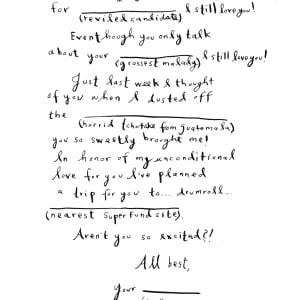 for ____________ I still love you!
(reviled candidate)
Even though you only talk
about your ____________ I still love you!
(grossest malady)
Just last week I thought
of you when I dusted off
the ____________
(horrid tchotchke from Guatemala)
you so sweetly brought me!
In honor of my unconditional
love for you I've planned
a trip for you to... drumroll...
____________
(nearest Superfund site).
Aren't you so excited?!
All best,
your ____________